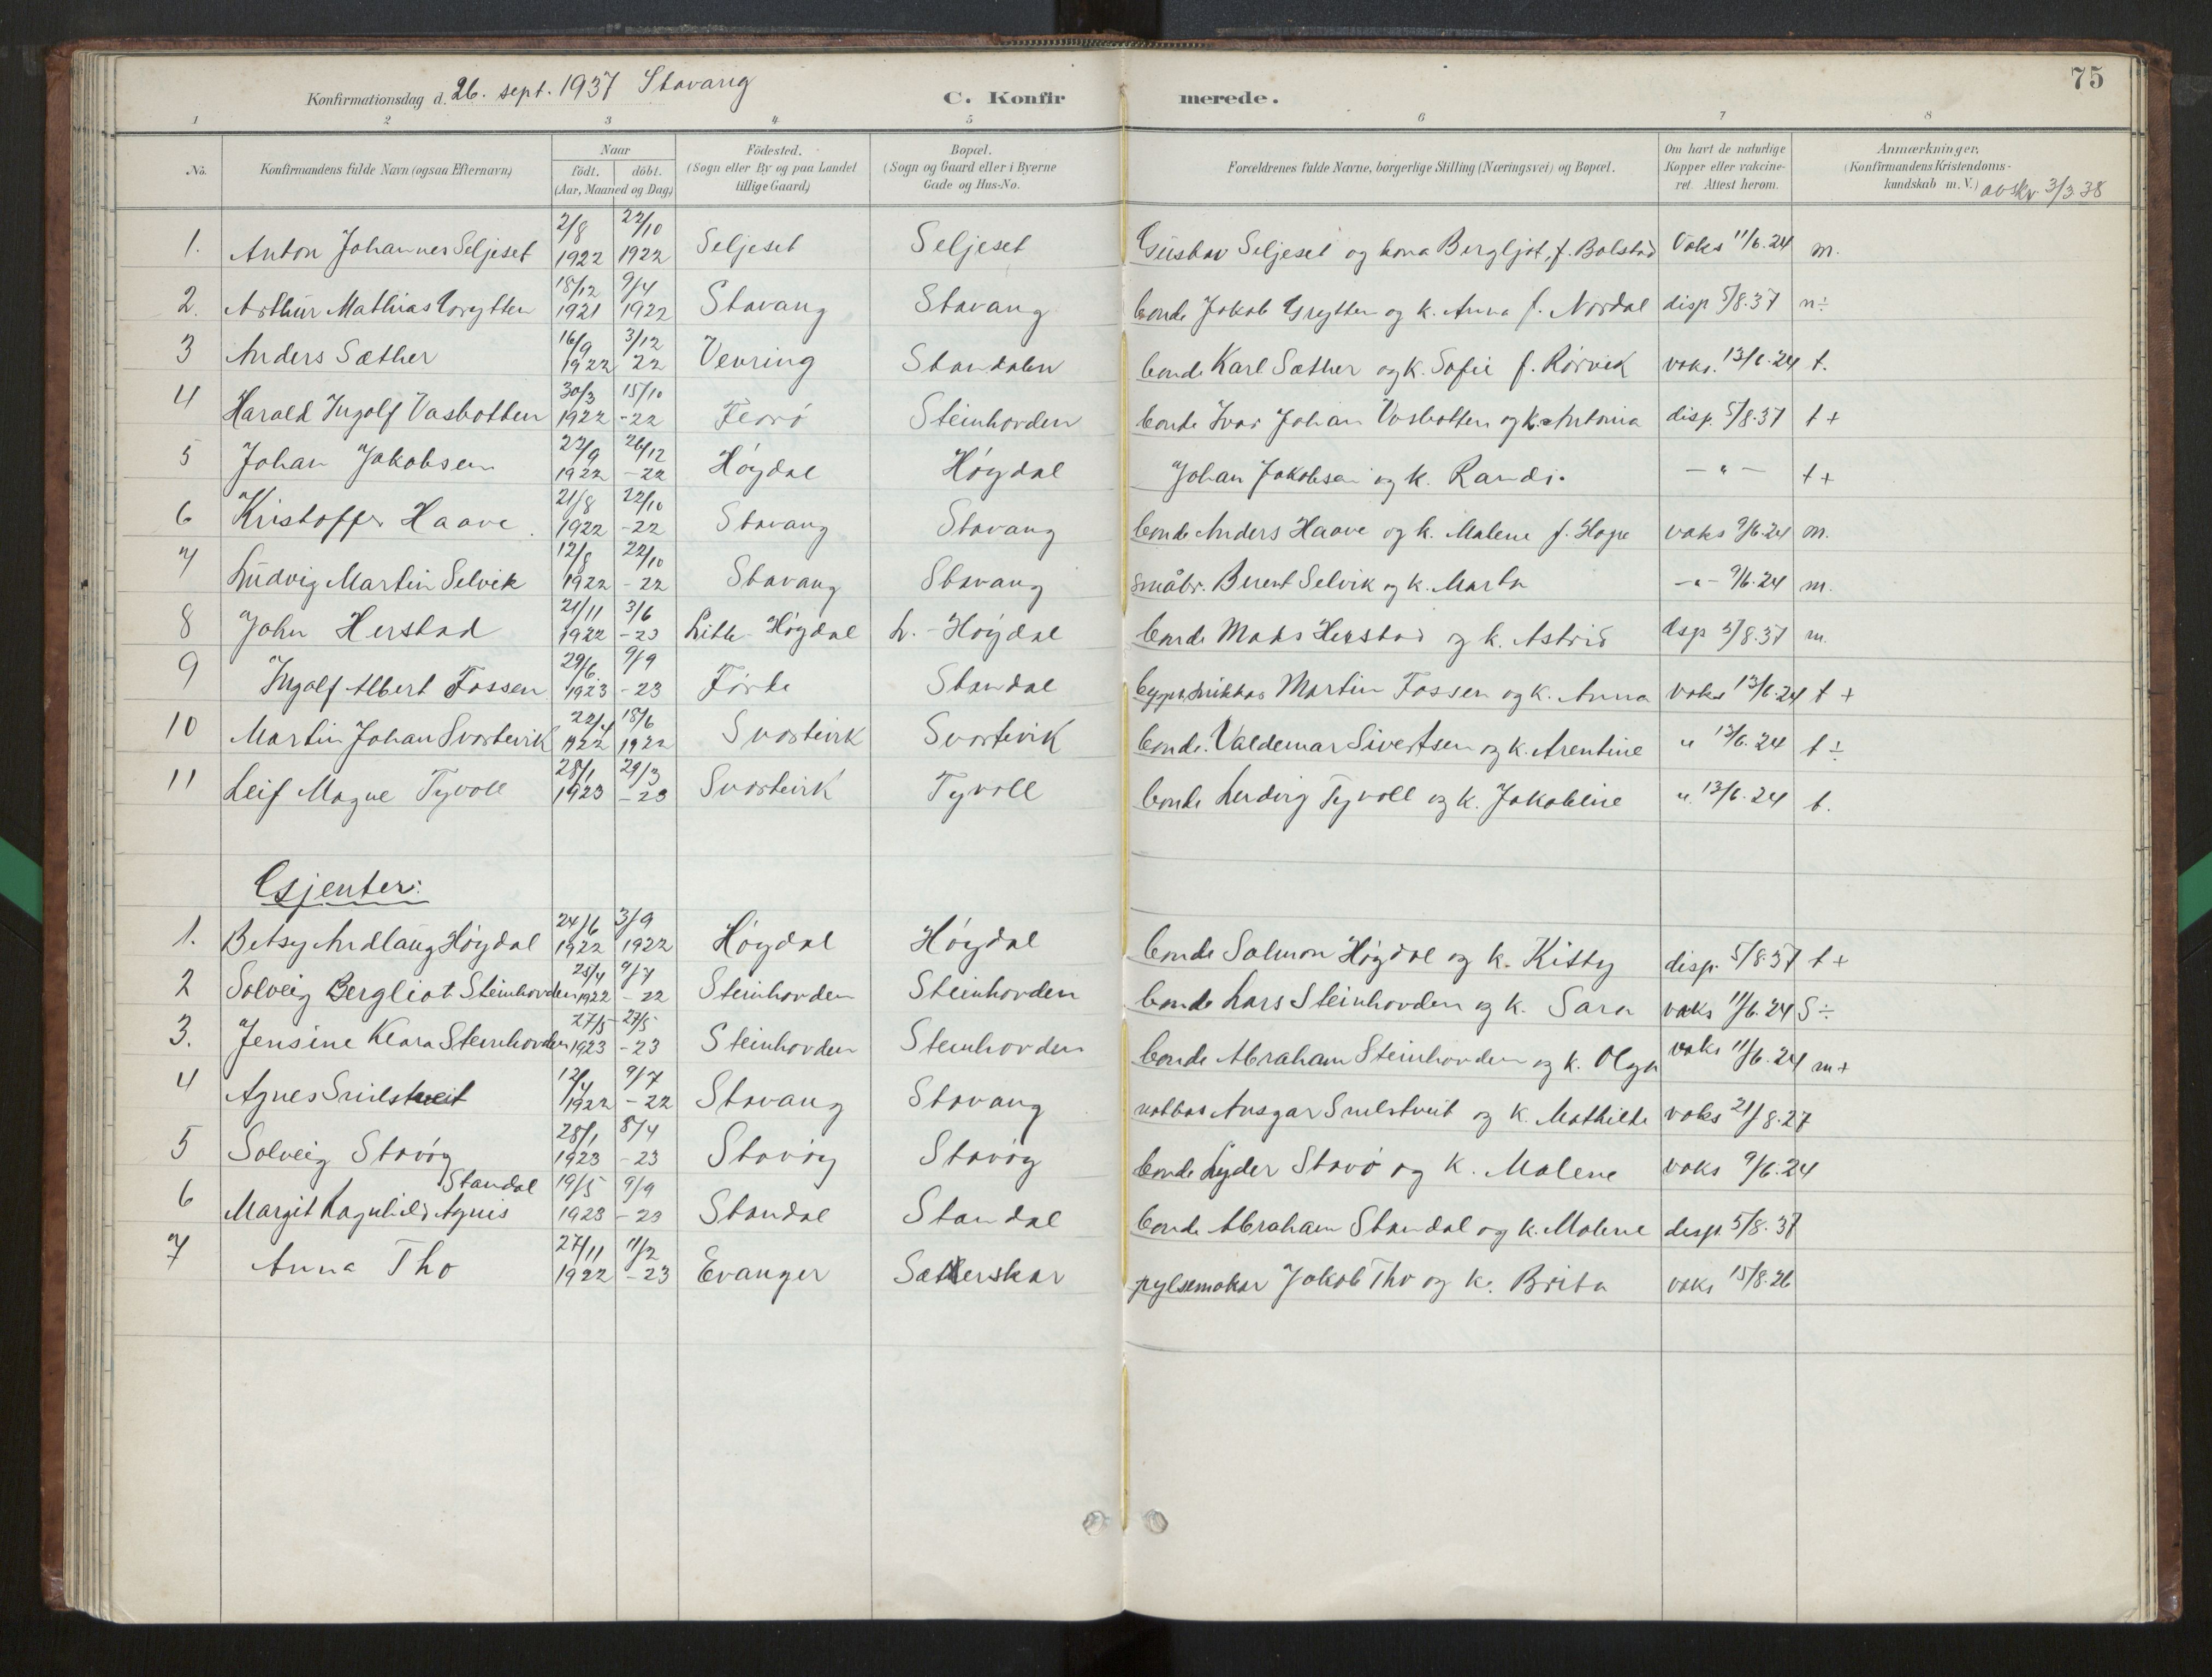 75
Konfirmationsdag d. 26. sept. 1937 Stavang
C. Konfirmerede.
1 2 3 4 5 6 7 8
No. Konfirmandens fulde Navn (ogsaa Efternavn) Naar födt. döbt. (Aar, Maaned og Dag) Födested. (Sogn eller By og paa Landet tillige Gaard) Bopæl. (Sogn og Gaard eller i Byerne Gade og Hus-No. Forældrenes fulde Navne, borgerlige Stilling (Næringsvei) og Bopæl. Om havt de naturlige Kopper eller vakcineret. Attest herom. Anmærkninger, (Konfirmandens Kristendomskundskab m. V.) avskr 3/3 38
1. Anton Johannes Seljeset 2/8 1922 22/10 1922 Seljeset Seljeset Gustav Seljeset og kona Bergljot, f. Bolstad Vaks 11/6.24 m.
2. Arthur Mathias Grytten 18/12 1921 9/4 1922 Stavang Stavang bonde Jakob Grytten og k. Anna f. Nordal disp 5/8.37 m÷
3 Anders Sæther 16/9 1922 3/12 22 Vevring Standalen bonde Karl Sæther og k. Sofie f. Rørvik vaks. 13/6.24 t.
4 Harald Ingolf Vasbotten 30/3 1922 15/10 -22 Florø Steinhovden bonde Ivar Johan Vasbotten og k. Antonia disp. 5/8.37 t +
5 Johan Jakobsen 22/9 1922 26/12 -22 Høydal Høydal Johan Jakobsen og k. Randi. - " - t +
6 Kristoffer Haave 21/8 1922 22/10 -22 Stavang Stavang bonde Anders Haave og k. Malene f. Hope vaks 9/6.24 m.
7 Ludvig Martin Selvik 12/8 1922 22/10 -22 Stavang Stavang småbr. Berent Selvik og k. Marta -"- 9/6.24 m.
8 John Herstad 21/11 1922 3/6 -23 Litle-Høydal L.-Høydal bonde Mads Herstad og k. Astrid disp 5/8.37 m.
9 Ingolf Albert Fossen 29/6 1923 9/9 -23 Førde Standal Martin Fossen og k. Anna vaks 13/6.24 t +
10 Martin Johan Svortevik 22/4 1922 18/6 1922 Svortevik Svortevik bonde. Valdemar Sivertsen og k. Arentine " 13/6.24 t ÷
11 Leif Magne Tyvoll 28/1 1923 29/3 -23 Svortevik Tyvoll bonde Ludvig Tyvoll og k. Jakobine ". 13/6.24 t.
Gjenter:
1. Betsy Ardlaug Høydal 24/6 1922 3/9 1922 Høydal Høydal bonde Salmon Høydal og k. Kitty disp. 5/8.37 t +
2 Solveig Bergliot Steinhovden 25/4 1922 9/7 -22 Steinhovden Steinhovden bonde Lars Steinhovden og k. Sara vaks 11/6.24 S÷
3. Jensine Klara Steinhovden 27/5 1923 27/5 -23 Steinhovden Steinhovden bonde Abraham Steinhovden og k. Olga vaks 11/6.24 m+
4 Agnes Smelstveit 12/4 1922 9/7 -22 Stavang Stavang notbas Ansgar Smelstveit og k. Mathilde vaks 21/8.27
5 Solveig Stavøy 28/1 1923 8/4 -23 Stavøy Stavøy bonde Lyder Stavø og k. Malene vaks 9/6.24
6 Margit Ragnhild Agnis Standal 19/5 1923 9/9 -23 Standal Standal bonde Abraham Standal og k. Malene disp. 5/8.37
7 Anna Tho 27/11 1922 11/2 -23 Evanger Sæterskar pylsemaker Jakob Tho og k. Brita vaks 15/8.26